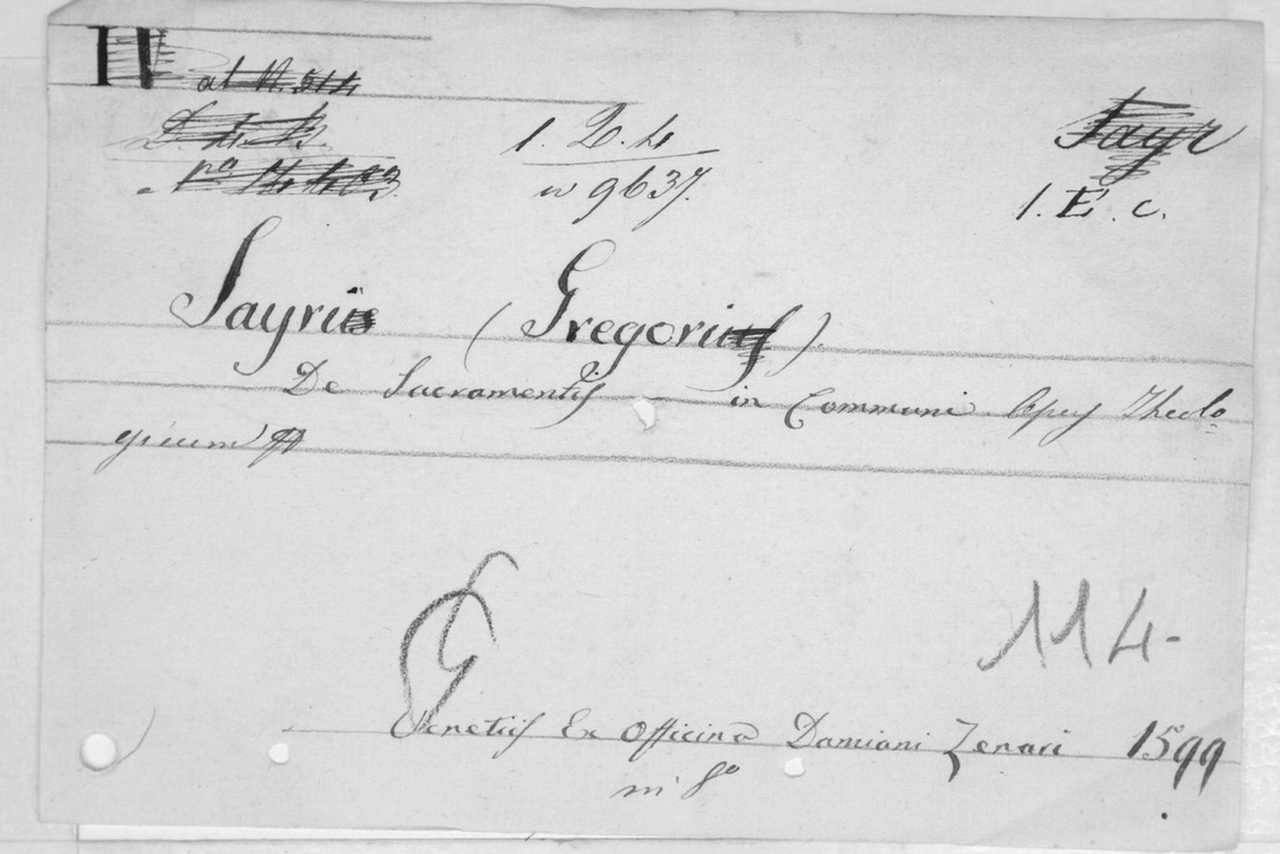 IV
al N. 514
1. 2. 4
Sayr
n 9637.
1. E. c.
Sayrius (Gregorius).
De Sacramentis in Communi Opus Theolo-
gicum
114-
Venetiis Ex Officina Damiani Zenari 1599
in 8º